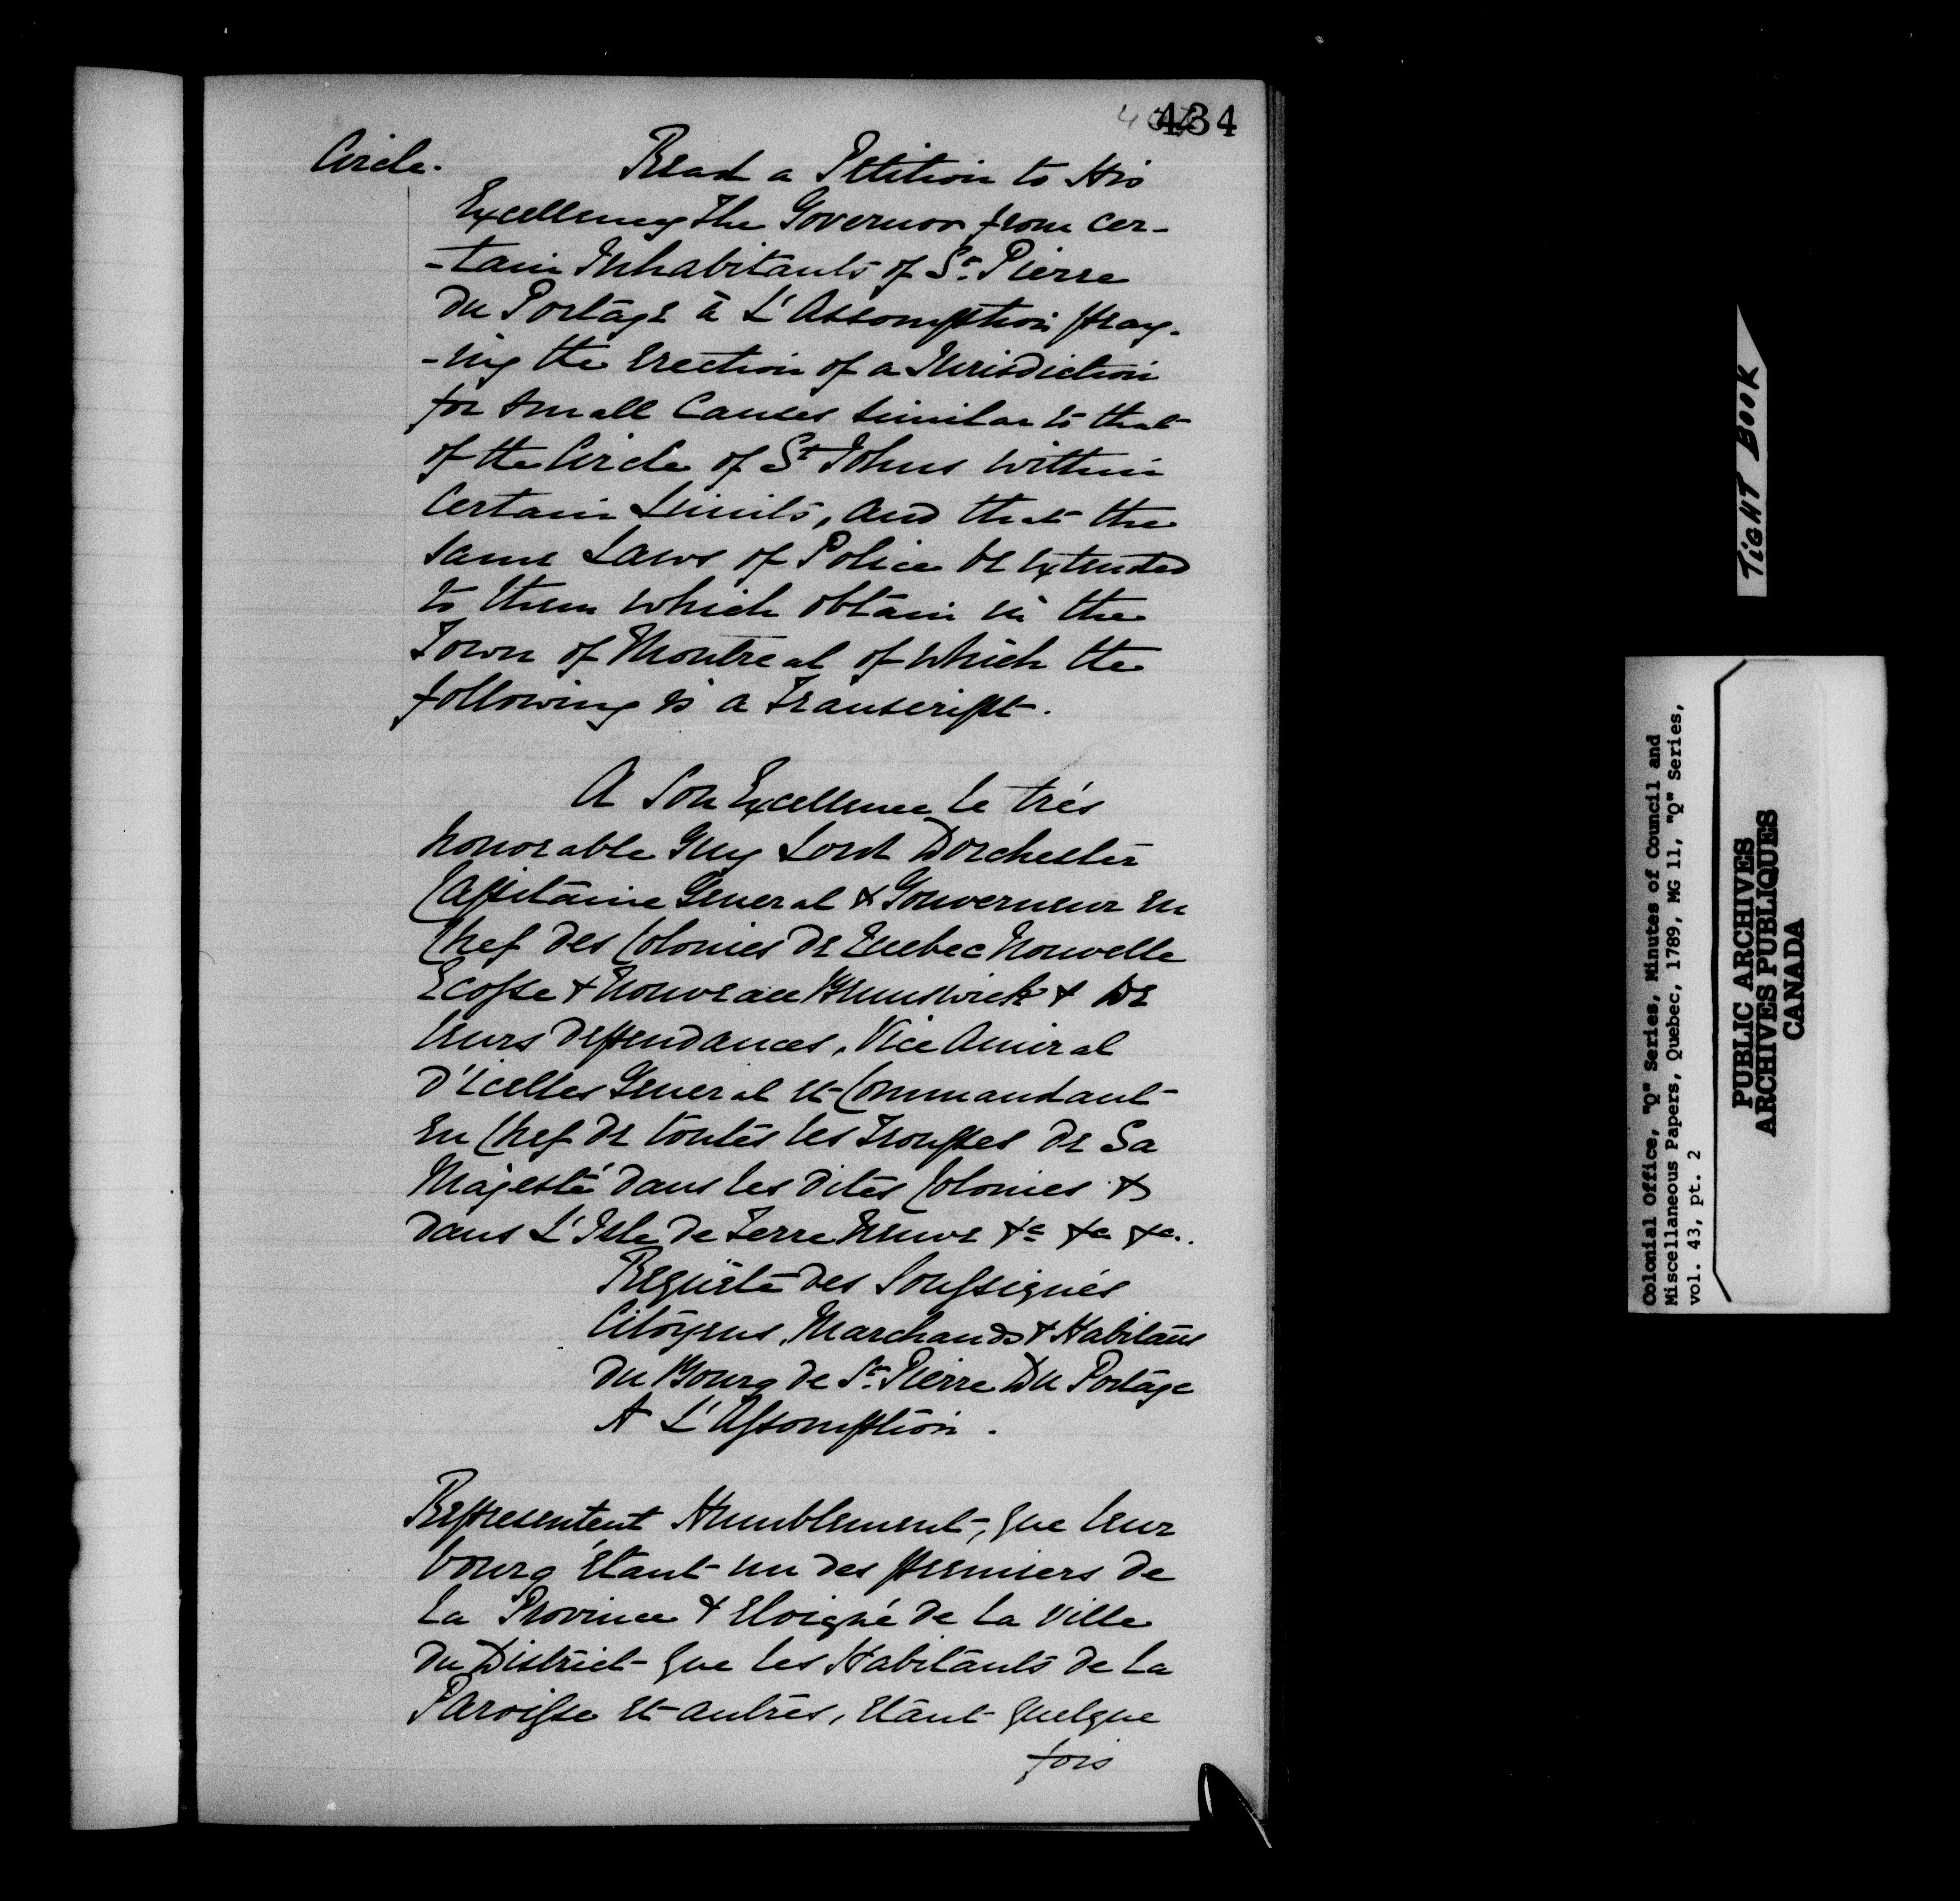 434
Circle.
Read a Petition to His
Excellency The Governor from cer-
-tain Inhabitants of St. Pierre
du Portage à L'Assomption pray-
-ing the Erection of a Jurisdiction
for small Causes similar to that
of the Circle of St Johns within
Certain Limits, and that the
same Laws of Police be extended
to them which obtain in the
Town of Montreal of which the
following is a Transcript.
A Son Excellence le trés
honorable Guy Lord Dorchester
Capitaine General & Gouverneur en
Chef des Colonies de Quebec Nouvelle
Ecosse & Nouveau Brunswick & de
leurs dependances, Vice Amiral
d'icelles General et Commandant
en Chef de toutes les Troupes de Sa
Majesté dans les dites Colonies &
dans L'Isle de Terre Neuve &c &c &c.
Requête des Soussignés
Citoyens, Marchands & Habitans
du Bourg de St. Pierre Du Portage
A L'Assomption.
Representent Humblement, que leur
bourg étant un des premiers de
la Province & eloigné de la Ville
du District que les Habitants de la
Paroisse et autres, etant quelque
fois
TIGHT BOOK
Colonial Office, "Q" Series, Minutes of Council and
Miscellaneous Papers, Quebec, 1789, MG 11, "Q" Series,
vol. 43, pt. 2
PUBLIC ARCHIVES
ARCHIVES PUBLIQUES
CANADA